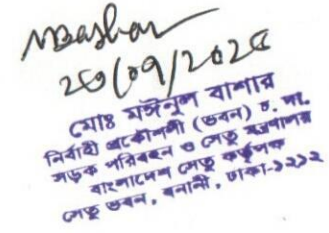 MBashar
২৩/০৭/২০২৫
মোঃ মঈনুল বাশার
নির্বাহী প্রকৌশলী (ভবন) চ. দা.
সড়ক পরিবহন ও সেতু মন্ত্রণালয়
বাংলাদেশ সেতু কর্তৃপক্ষ
সেতু ভবন, বনানী, ঢাকা-১২১২